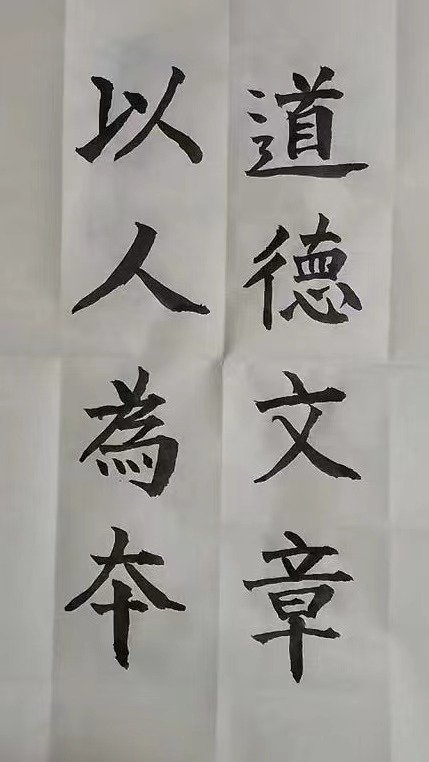 道德文章
以人為本